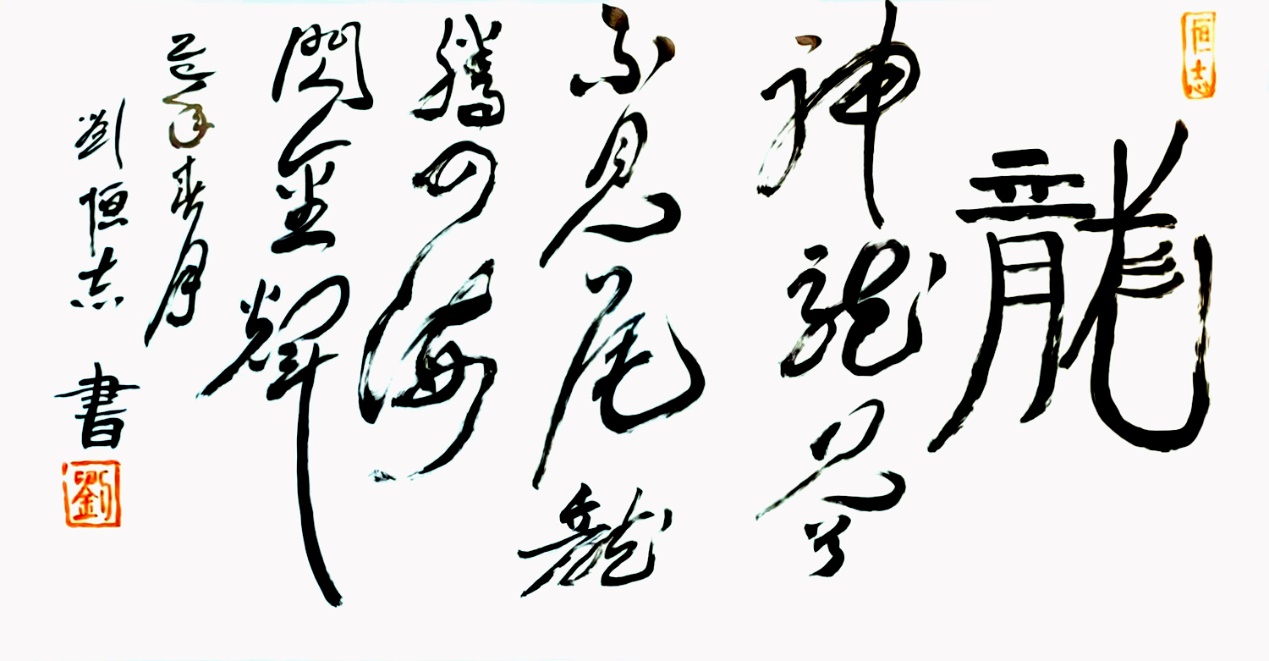 恒志
龍
神龍見首
不見尾龍
騰四海
閃金輝
年春月
劉恒志 書
劉